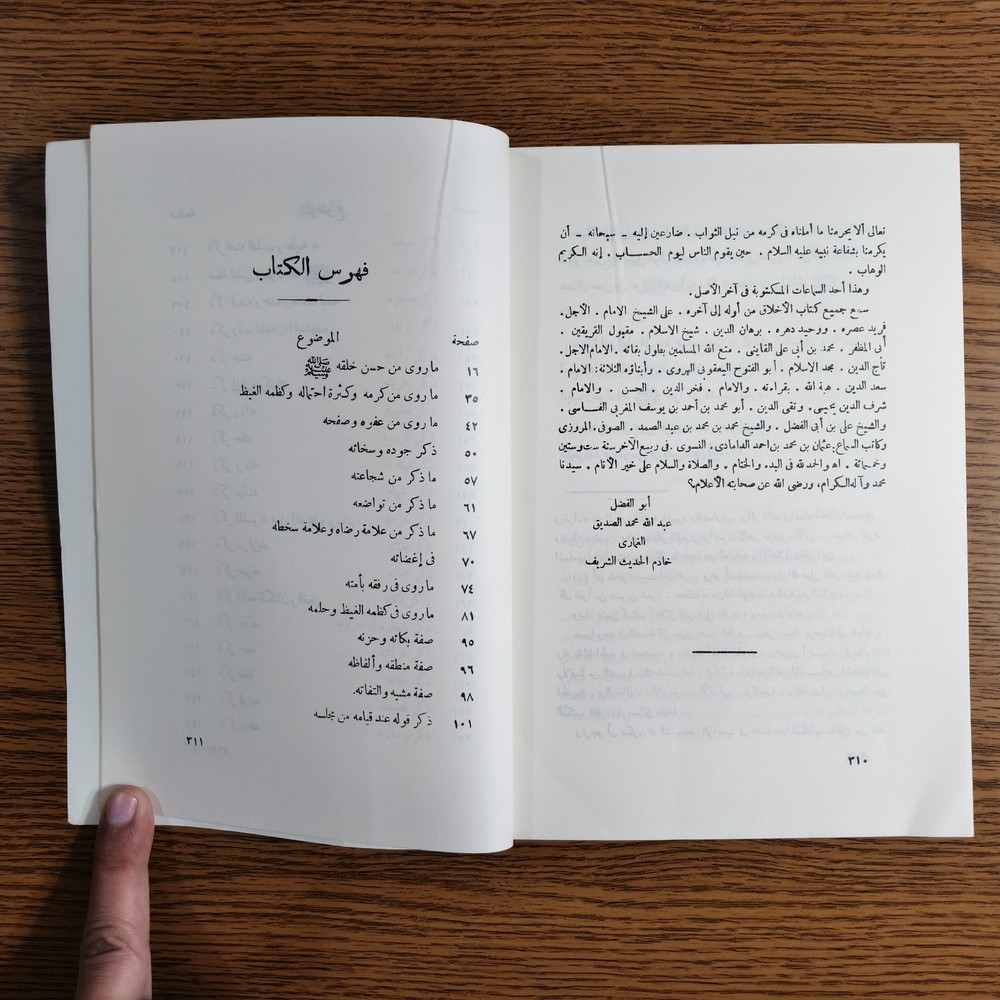 تعالى ألا يحرمنا ما أملناه فى كرمه من نيل الثواب . ضارعين إليه ــ سبحانه ــ أن
يكرمنا بشفاعة نبيه عليه السلام . حين يقوم الناس ليوم الحســاب . إنه الكريم
الوهاب .
وهذا أحد السماعات المكتوبة فى آخر الأصل .
سمع جميع كتاب الأخلاق من أوله إلى آخره . على الشيخ الامام . الأجل .
فريد عصره . ووحيد دهره . برهان الدين . شيخ الاسلام . مقبول الفريقين .
أبى المظفر . محمد بن أبى على القاينى . متع الله المسلمين بطول بقائه . الامام الاجل .
تاج الدين . مجد الاسلام . أبو الفتوح اليعقوبى الهروى . وأبناؤه الثلاثة: الامام .
سعد الدين . هبة الله . بقراءته . والامام . فخر الدين . الحسن . والامام .
شرف الدين يحيى . ونقى الدين . أبو محمد بن أحمد بن يوسف المغربى الفــاسى .
والشيخ على بن أبى الفضل . والشيخ محمد بن محمد بن عبد الصمد . الصوفى المروزى
وكاتب السماع:عثمان بن محمد بن احمد الدامادى . النسوى . فى ربيع الآخر سنة ست وستين
وخمسمائة . اه والحمد لله فى البدء والختام . والصلاة والسلام على خير الأنام . سيدنا
محمد وآله الكرام، ورضى الله عن صحابته الأعلام؟
أبو الفضل
عبد الله محمد الصديق
الغمارى
خادم الحديث الشريف
٣١٠
فهرس الكتاب
صفحة الموضوع
١٦ ما روى من حسن خلقه ﷺ
٣٥ ما روى من كرمه وكثرة احتماله وكظمه الغيظ
٤٢ ما روى من عفوه وصفحه
٥٠ ذكر جوده وسخائه
٥٧ ما ذكر من شجاعته
٦١ ما ذكر من تواضعه
٦٧ ما ذكر من علامة رضاه وعلامة سخطه
٧٠ فى إغضائه
٧٤ ما روى فى رفقه بأمته
٨١ ما روى فى كظمه الغيظ وحلمه
٩٥ صفة بكائه وحزنه
٩٦ صفة منطقه وألفاظه
٩٨ صفة مشيه والتفاته.
١٠١ ذكر قوله عند قيامه من مجلسه
٣١١